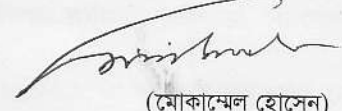 (মোকাম্মেল হোসেন)